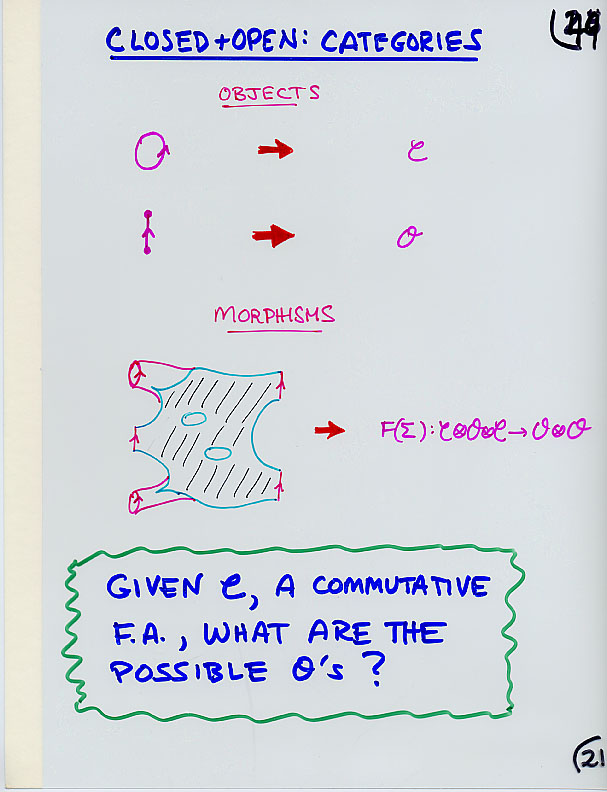 CLOSED + OPEN: CATEGORIES
OBJECTS
𝒞
𝒪
MORPHISMS
F(Σ): 𝒞⊗𝒪⊗𝒞 → 𝒪⊗𝒪
GIVEN 𝒞, A COMMUTATIVE
F.A., WHAT ARE THE
POSSIBLE 𝒪'S ?
21